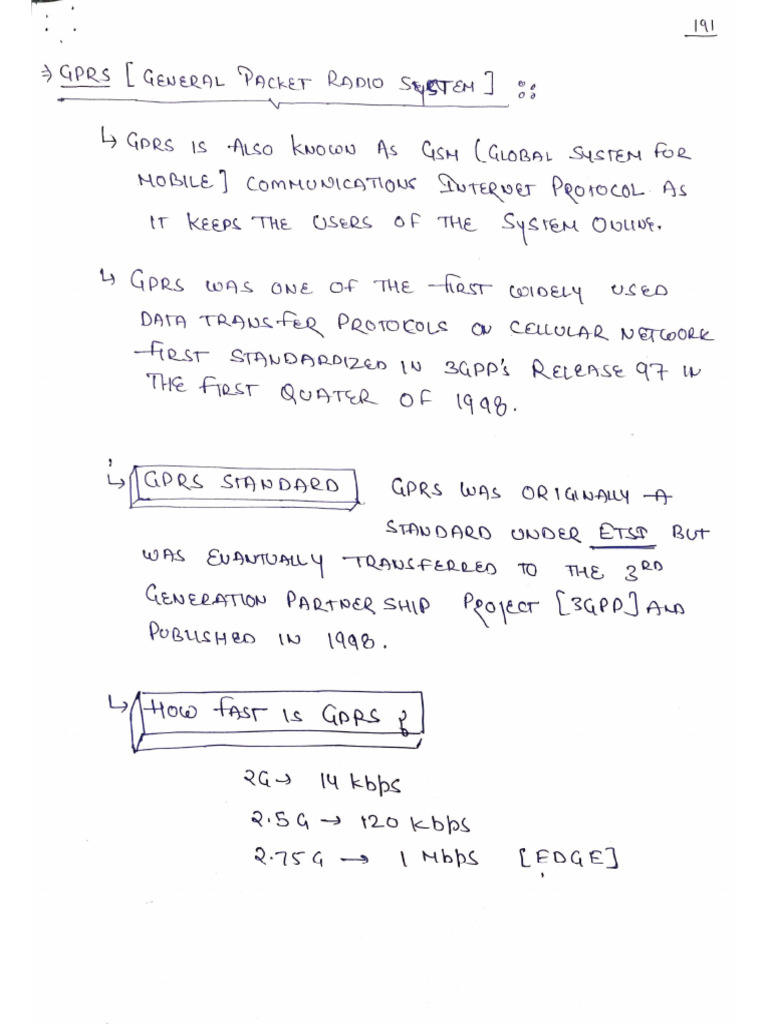 191
⇒ GPRS [GENERAL PACKET RADIO SYSTEM] ::
↳ GPRS IS ALSO KNOWN AS GSM (GLOBAL SYSTEM FOR
MOBILE] COMMUNICATIONS INTERNET PROTOCOL AS
IT KEEPS THE USERS OF THE SYSTEM ONLINE.
↳ GPRS WAS ONE OF THE FIRST WIDELY USED
DATA TRANSFER PROTOCOLS ON CELLULAR NETWORK
FIRST STANDARDIZED IN 3GPP'S RELEASE 97 IN
THE FIRST QUATER OF 1998.
↳ GPRS STANDARD GPRS WAS ORIGINALLY A
STANDARD UNDER ETSI BUT
WAS EVANTUALLY TRANSFERRED TO THE 3RD
GENERATION PARTNERSHIP PROJECT [3GPP] AND
PUBLISHED IN 1998.
↳ HOW FAST IS GPRS ?
2G → 14 kbps
2.5G → 120 kbps
2.75G → 1 Mbps [EDGE]